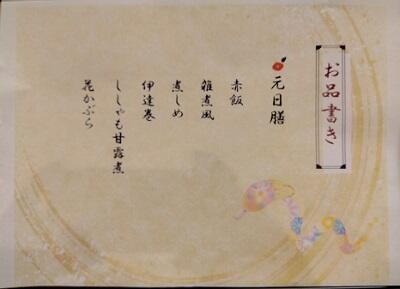 お品書き
元日膳
赤飯
雑煮風
煮しめ
伊達巻
ししゃも甘露煮
花かぶら